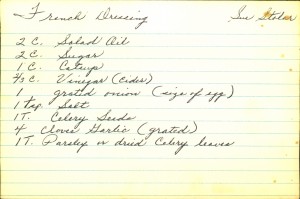 French Dressing Sue
2 C. Salad Oil
2 C. Sugar
1 C. Catsup
2/3 C. Vinegar (cider)
1 grated onion (size of egg)
1 tsp. Salt
1 T. Celery Seeds
4 Cloves Garlic (grated)
1 T. Parsley or dried Celery leaves